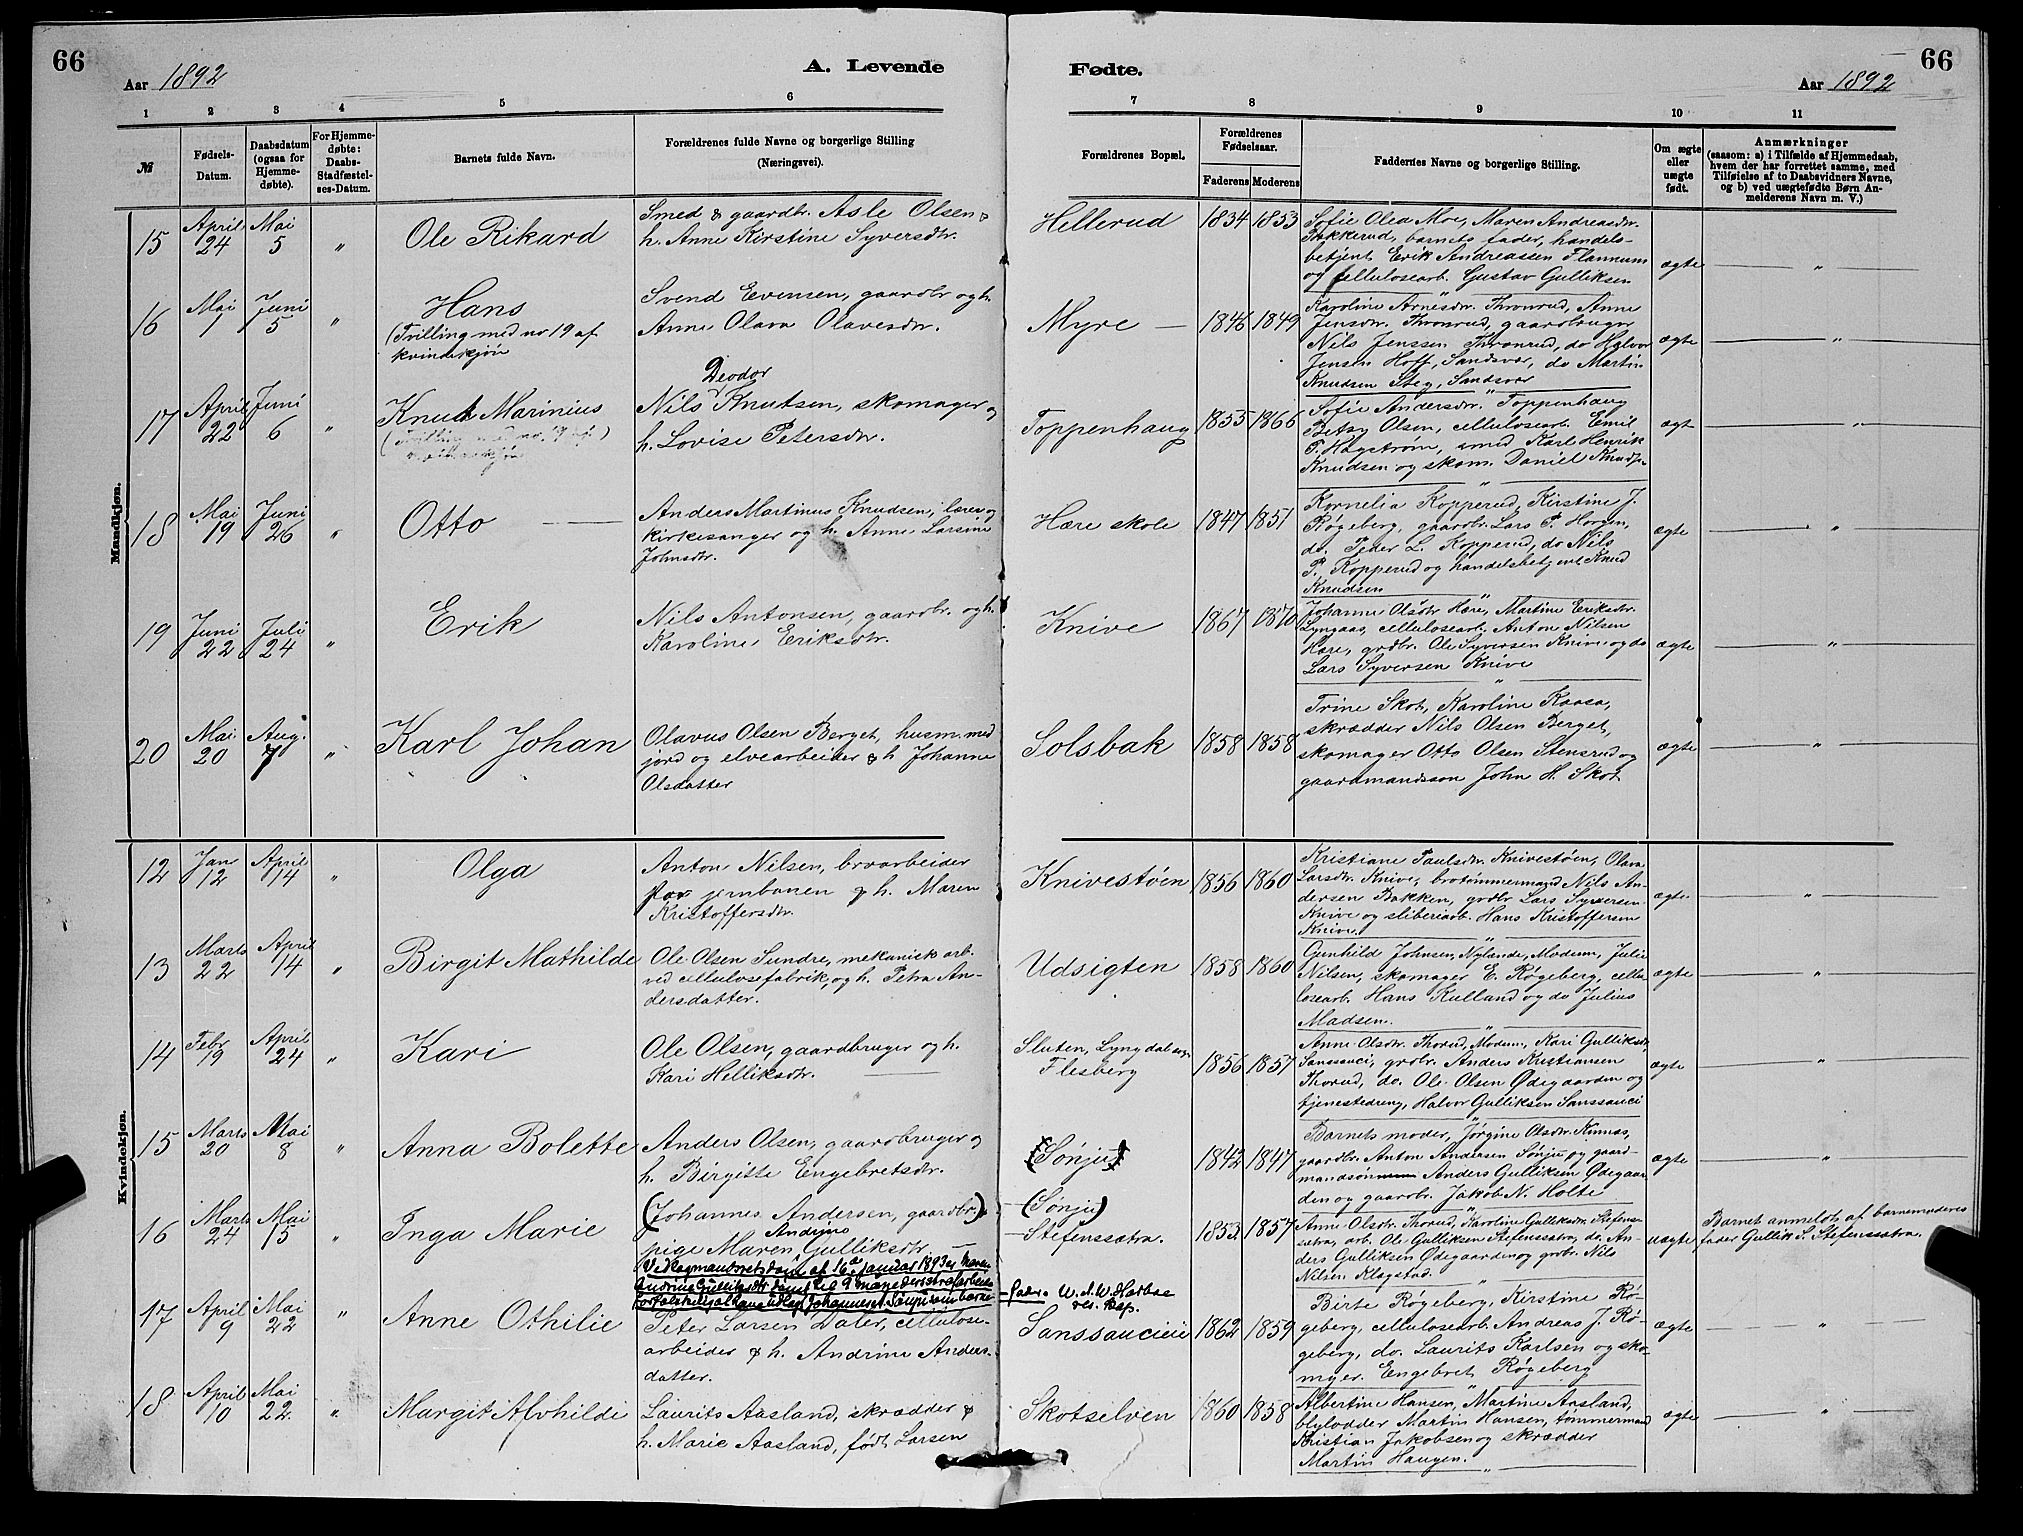 66
Aar 1892
A. Levende
1 2 3 4 5 6
№
Fødsels-
Datum.
Daabsdatum
(ogsaa for
Hjemme-
døbte).
For Hjemme-
døbte:
Daabs-
Stadfæstel-
ses-Datum.
Barnets fulde Navn.
Forældrenes fulde Navne og borgerlige Stilling
(Næringsvei).
Fødte.
66
Aar 1892
7 8 9 10 11
Forældrenes Bopæl.
Forældrenes
Fødselsaar.
Faderens Moderens
Faddernes Navne og borgerlige Stilling.
Om ægte
eller
uægte
født.
Anmærkninger
(saasom: a) i Tilfælde af Hjemmedaab,
hvem der har forrettet samme, med
Tilføielse af to Daabsvidners Navne,
og b) ved uægtefødte Børn An-
melderens Navn m. V.)
Mandkjøn.
15
April
24
Mai
5
"
Ole Rikard
Smed & gaardbr. Asle Olsen &
h. Anne Kirstine Syversdtr.
Hellerud
1834 1853
Sofie Olea Moe, Maren Andreasdtr.
Bakkerud, barnets fader, handels-
betjent Erik Andreassen Flannum
og cellulosearb. Gustav Gulliksen
ægte
"
16
Mai
1
Juni
5
"
Hans
(Tvilling med no 19 af
kvindekjøn
Svend Evensen, gaardbr og h.
Anne Olava Olavesdtr.
Myre
1846 1849
Karoline Arnesdtr. Thronrud, Anne
Jensdtr. Thronrud, gaardbruger
Nils Jenssen Thronrud, do Halvor
Jensen Hoff, Sandsvær, do Martin
Knudsen Steg, Sandsvær
ægte
"
17
April
22
Juni
6
"
Knut Marinius
(Tvilling med no. 19 af
Deodor
Nils Knutsen, skomager og
h. Lovise Petersdtr.
Toppenhaug
1855 1866
Sofie Andersdtr. Toppenhaug
Betsy Olsen, cellulosearb. Emil
P. Hagstrøm, smed Karl Henrik
Knudsen og skom. Daniel
ægt
"
18
Mai
19
Juni
26
"
Otto
Anders Martinus Knudsen, lærer og
kirkesanger og h. Anne Larsine
Johnsdtr.
Hære skole
1847 1851
Kornelia Kopperud, Kirstine J.
Røgeberg, gaardbr. Lars P. Horgen,
do. Peder L. Kopperud, do Nils
P. Kopperud og handelsbetjent Knud
Knudsen
ægte
"
19
Juni
22
Juli
24
"
Erik
Nils Antonsen, gaardbr. og h.
Karoline Eriksdtr.
Knive
1867 1870
Johanne Olsdtr Hære, Martine Eriksdtr.
Lyngaas, cellulosearb. Anton Nilsen
Hære, grdbr. Ole Syversen Knive og do
Lars Syversen Knive
ægte
"
20
Mai
20
Aug.
7
"
Karl Johan
Olavus Olsen Berget, husm. med
jord og elvearbeider & h Johanne
Olsdatter
Solsbak
1858 1858
Trine Skot, Karoline Kaasa,
skrædder Nils Olsen Berget,
skomager Otto Olsen Stensrud og
gaardmandssøn John H. Skot
ægte
"
Kvindekjøn.
12
Jan
12
April
14
"
Olga
Anton Nilsen, broarbeider
paa jernbanen & h. Maren
Kristoffersdtr.
Knivestøen
1856 1860
Kristiane Paulsdtr. Knivestøen, Olava
Larsdtr. Knive, brotømmermand Nils An-
dersen Bakken, grdbr Lars Syversen
Knive og sliberiarb. Hans Kristoffersen
Knive.
ægte
"
13
Marts
22
April
14
"
Birgit Mathilde
Ole Olsen Sundre, mekanisk arb.
ved cellulosefabrik, og h. Petra An-
dersdatter.
Udsigten
1858 1860
Gunhild Johnsen, Nylande, Modum, Julie
Nilsen, skomager E. Røgeberg, cellu-
losearb. Hans Kulland og do Julius
Madsen.
ægte
"
14
Febr
19
April
24
"
Kari
Ole Olsen, gaardbruger og h.
Kari Helliksdtr.
Sluten, Lyngdal sogn
Flesberg
1856 1857
Anne Olsdtr. Thorud, Modum, Kari Gulliksdtr,
Sanssauci, grdbr. Anders Kristiansen
Thorud, do. Ole Olsen Ødegaarden og
tjenestedreng, Halvor Gulliksen Sanssauci
ægte
"
15
Marts
20
Mai
8
"
Anna Bolette
Anders Olsen, gaardbruger og
h. Birgitte Engebretsdtr.
(Sønju)
1842 1847
Barnets moder, Jørgine Olsdtr. Kinnas,
gaardbr. Anton Andersen Sønju og gaard-
mandssøn Anders Gulliksen Ødegaar-
den og gaardbr. Jakob N. Holte
ægte
"
16
Marts
24
Mai
15
Inga Marie
(Johannes Andersen, gaardbr.) &
Andrine
pige Maren Gulliksdtr.
Ved lagmandsretsdom af 16de januar 1893 er Maren
Andrine Gulliksdtr dømt til 9 maaneders strafarbeide
for falskelig at have udlagt Johannes A. Sønju som barne-
fader. W. d. W. Hatboe
res. kap.
(Sønju)
Stefenssætra.
1853 1857
Anne Olsdtr. Thorud, Karoline Gulliksdtr. Stefens-
sætra, arb. Ole Gulliksen Stefenssætra, do. An-
ders Gulliksen Ødegaarden og grbr. Nils
Nilsen Klagstad.
uægte
Barnet anmeldt af barnemoderens
fader Gullik S. Stefenssætra.
17
April
9
Mai
22
"
Anne Othilie
Peter Larsen Daler, cellulose-
arbeider & h. Andrine Anders-
datter.
Sanssauciei
1862 1859
Birte Røgeberg, Kirstine Rø-
geberg, cellulosearb. Andreas J. Rø-
geberg, do. Laurits Karlsen og sko-
mager. Engebret Røgeberg
ægte
"
18
April
10
Mai
22
"
Margit Alvhildi
Laurits Aasland, skrædder &
h. Marie Aasland, født Larsen
Skotselven
1860 1858
Albertine Hansen, Martine Aasland,
blylodder Martin Hansen, tømmermand
Kristian Jakobsen og skrædder
Martin Haugen.
ægte
"